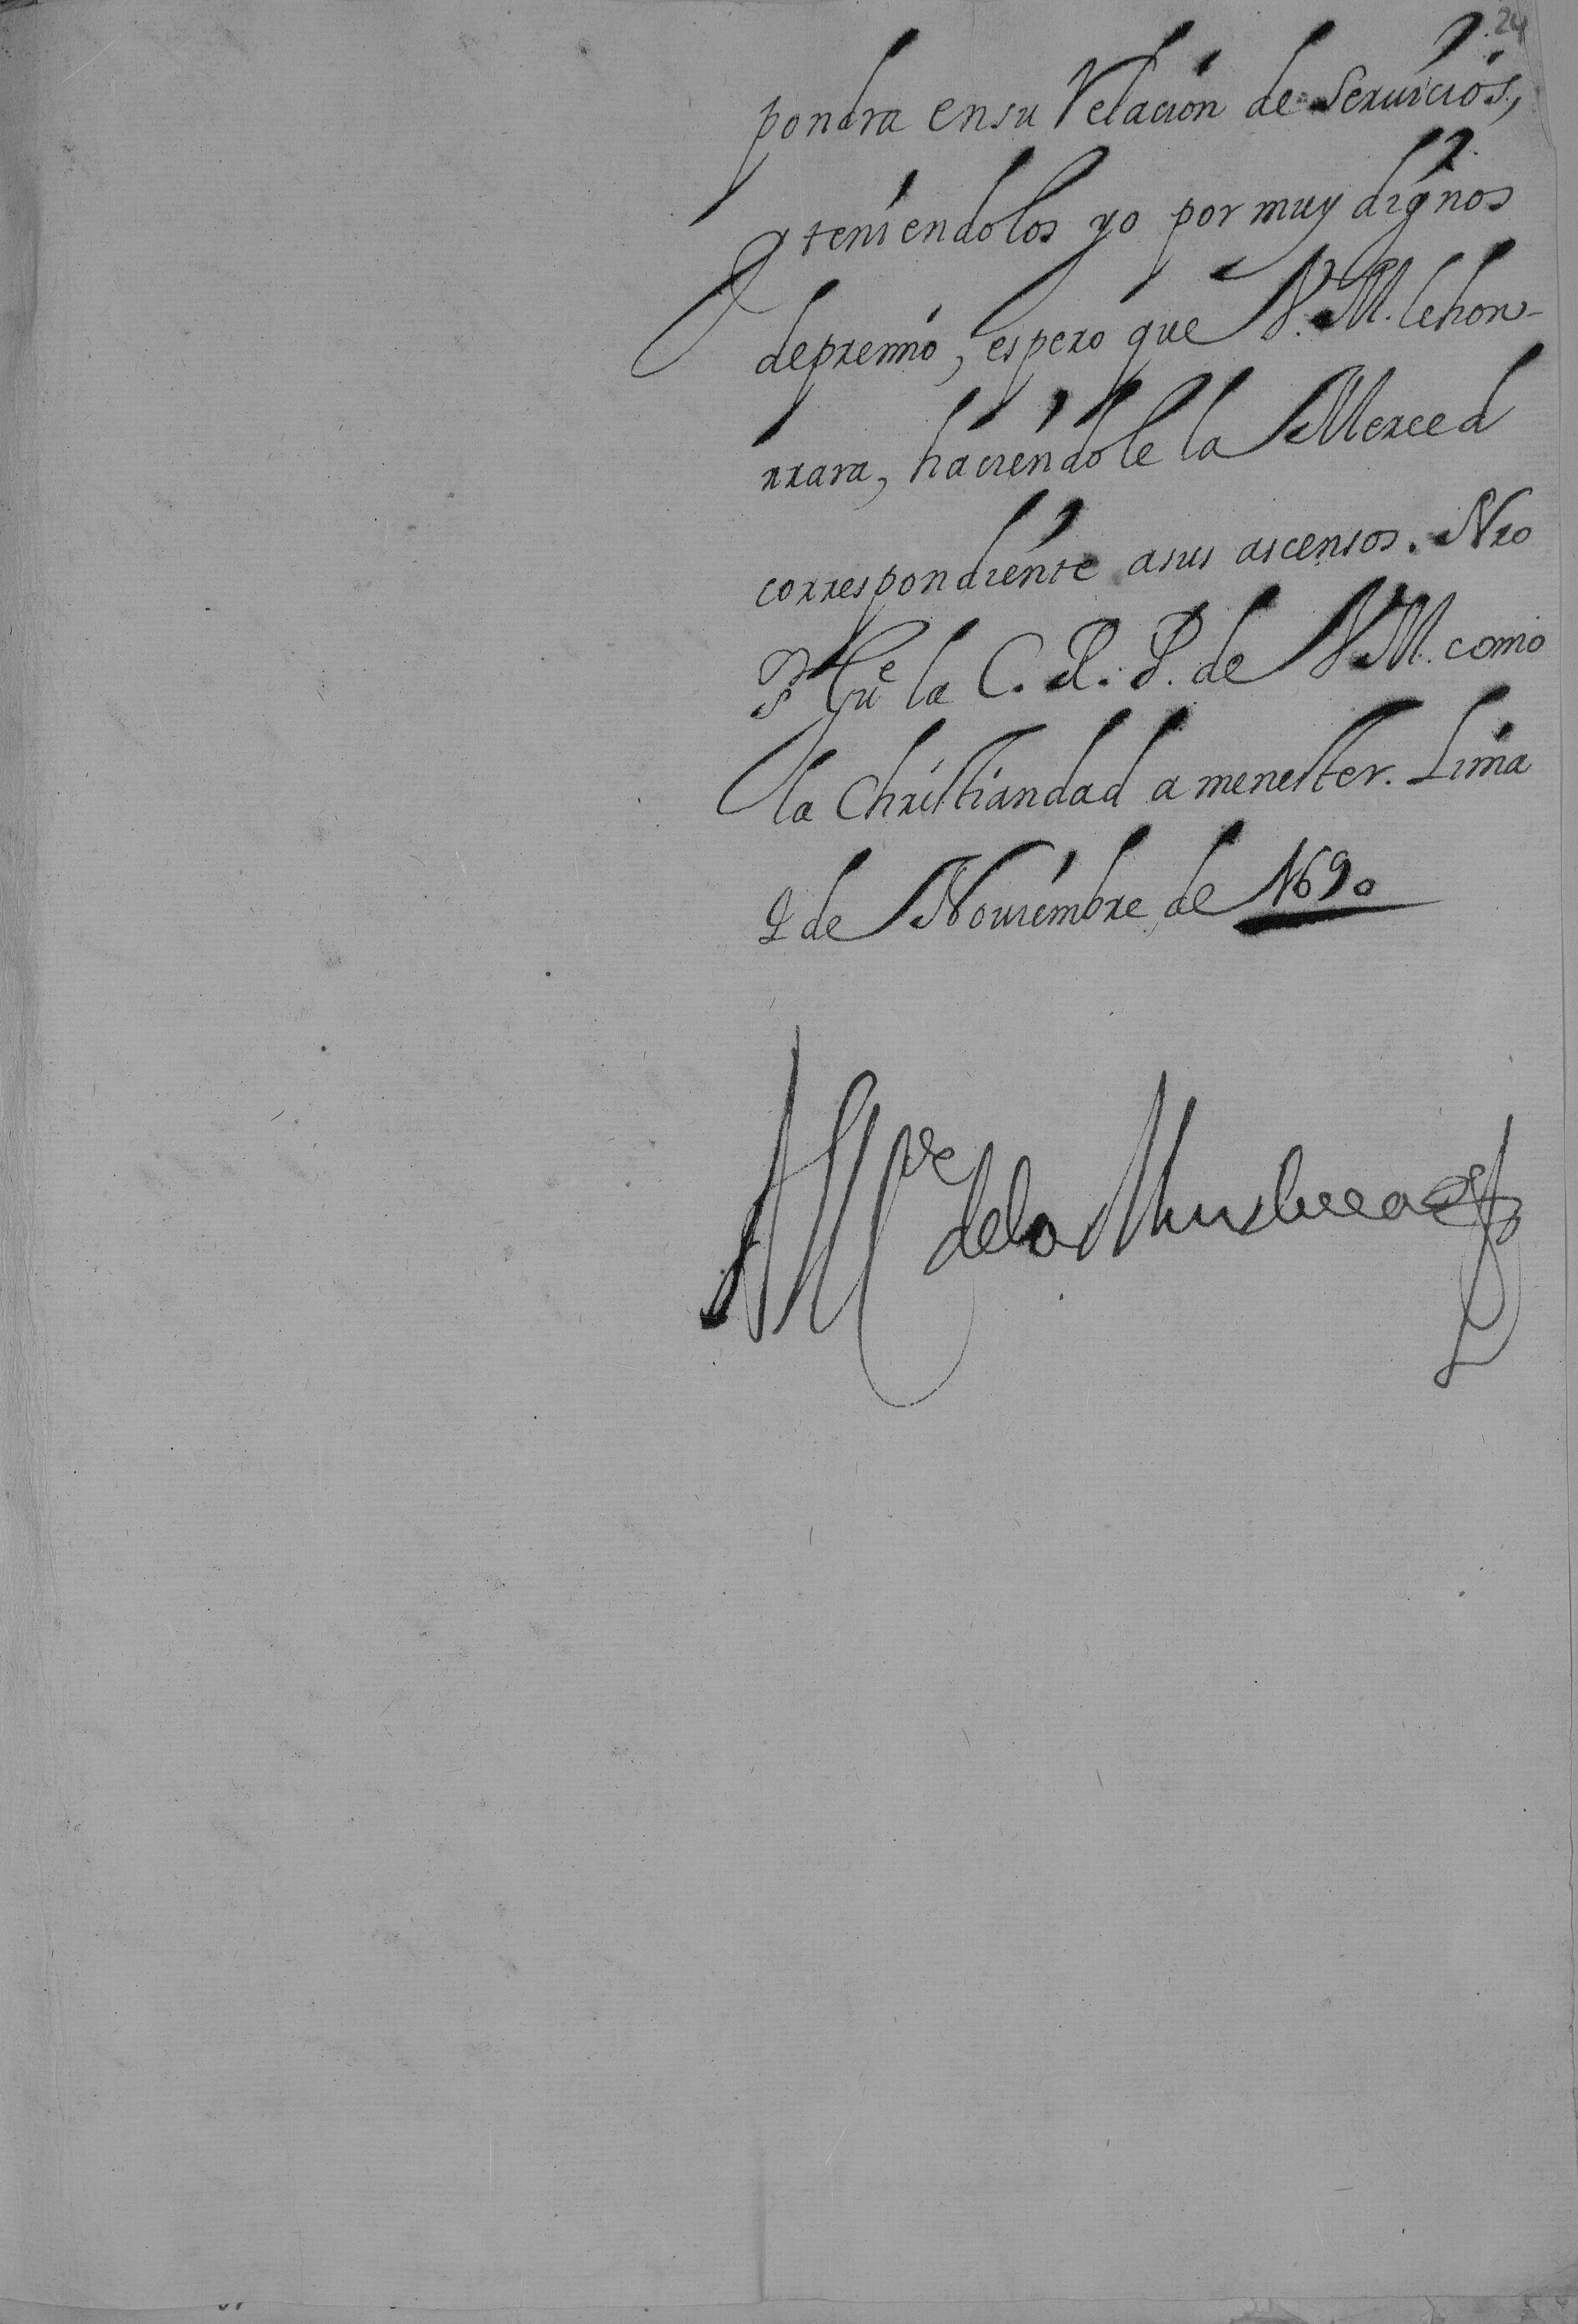 24
pondra en su Relacion de Seruicios,
y teniendolos yo por muy dignos
de premio, espero que V. M. le hon-
rrara, haciendole la Merced
correspondiente a sus ascensos. Nro
Sr. gue la C. R. P. de V. M. como
la Christiandad a menester. Lima
de Nouiembre de 1690
de la